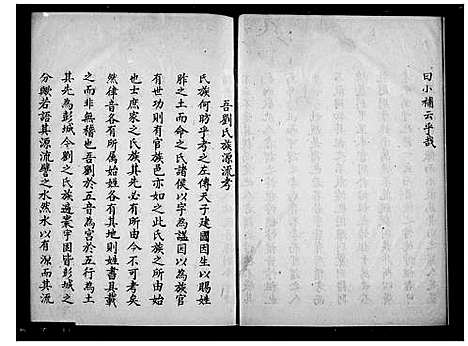 曰小補云乎哉
吾劉氏族源流考
氏族何昉乎考之左傳天子建國因生以賜姓
胙之土而命之氏諸侯以字為謚因以為族官
有世功則有官族邑亦如之此氏族之所由始
也士庶家之其先必有所由今不可考矣
然律音各有所属始姓各有其地則姓書具載
之而非無稽也吾劉於五音為宮於五行為土
其先為彭城今劉之氏族遍寰宇因皆彭城之
分歟若語其源流譬之水然水以有源而其流